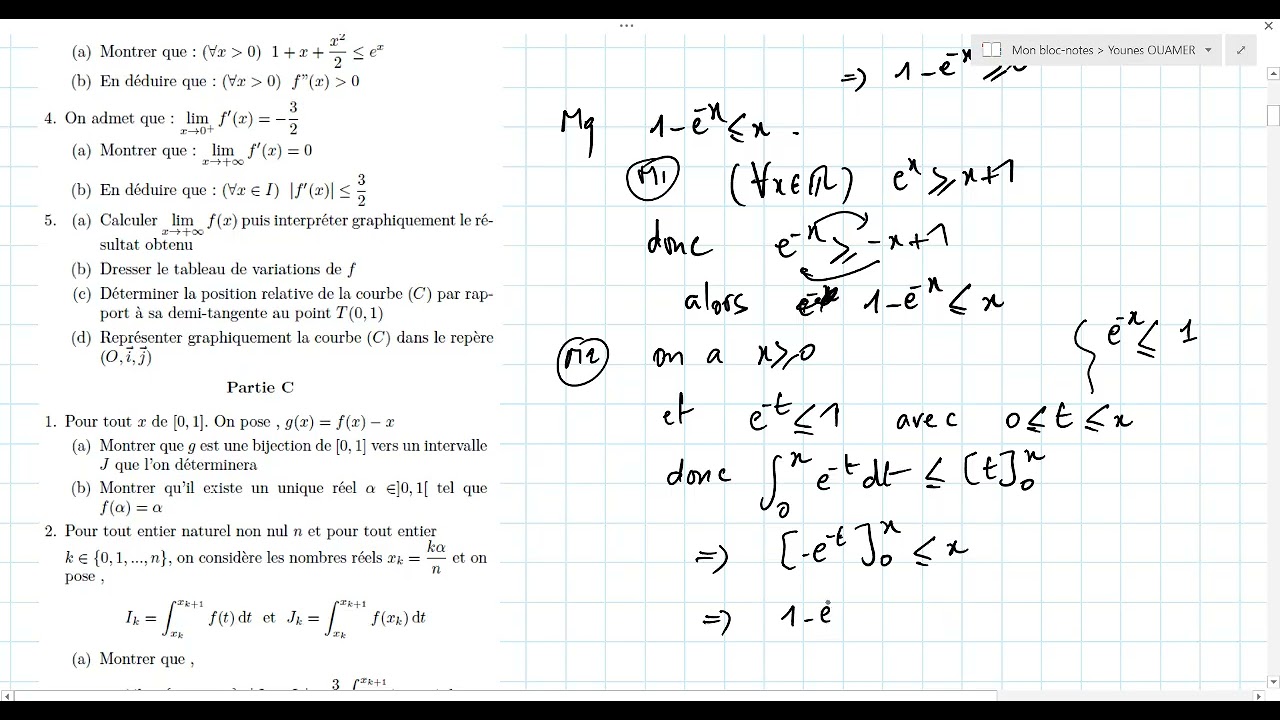 (a) Montrer que : (∀x > 0) 1 + x + x²/2 ≤ eˣ
(b) En déduire que : (∀x > 0) f"(x) > 0
4. On admet que : lim x→0⁺ f′(x) = −3/2
(a) Montrer que : lim x→+∞ f′(x) = 0
(b) En déduire que : (∀x ∈ I) |f′(x)| ≤ 3/2
5. (a) Calculer lim x→+∞ f(x) puis interpréter graphiquement le ré-
sultat obtenu
(b) Dresser le tableau de variations de f
(c) Déterminer la position relative de la courbe (C) par rap-
port à sa demi-tangente au point T(0, 1)
(d) Représenter graphiquement la courbe (C) dans le repère
(O, i⃗, j⃗)
Partie C
1. Pour tout x de [0, 1]. On pose , g(x) = f(x) − x
(a) Montrer que g est une bijection de [0, 1] vers un intervalle
J que l'on déterminera
(b) Montrer qu'il existe un unique réel α ∈]0, 1[ tel que
f(α) = α
2. Pour tout entier naturel non nul n et pour tout entier
k ∈ {0, 1, ..., n}, on considère les nombres réels xₖ = kα/n et on
pose ,
Iₖ = ∫_{xₖ}^{xₖ₊₁} f(t) dt et Jₖ = ∫_{xₖ}^{xₖ₊₁} f(xₖ) dt
(a) Montrer que ,
Mon bloc-notes > Younes OUAMER
⇒ 1 − e⁻ˣ ≥ 0
Mq 1 − e⁻ˣ ≤ x .
M1 (∀x∈ℝ) eˣ ≥ x+1
donc e⁻ˣ ≥ −x+1
alors 1 − e⁻ˣ ≤ x
M2 on a x ≥ 0
e⁻ˣ ≤ 1
et e⁻ᵗ ≤ 1 avec 0 ≤ t ≤ x
donc ∫₀ˣ e⁻ᵗ dt ≤ [t]₀ˣ
⇒ [−e⁻ᵗ]₀ˣ ≤ x
⇒ 1 − e